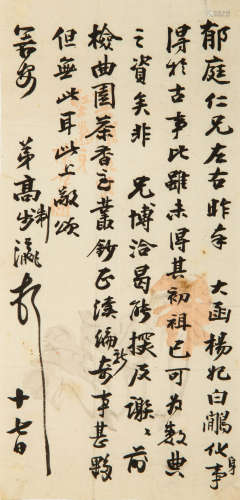 郁庭仁兄左右昨奉 大函楊妃白鷳化身事
得於古事比雖未得其初祖已可為數典
之資矣非 兄博洽曷能撰及謝謝前
檢曲園茶香室叢鈔正續編新奇事甚夥
但無此耳此上敬頌
著安 弟高步瀛制頓
十七日